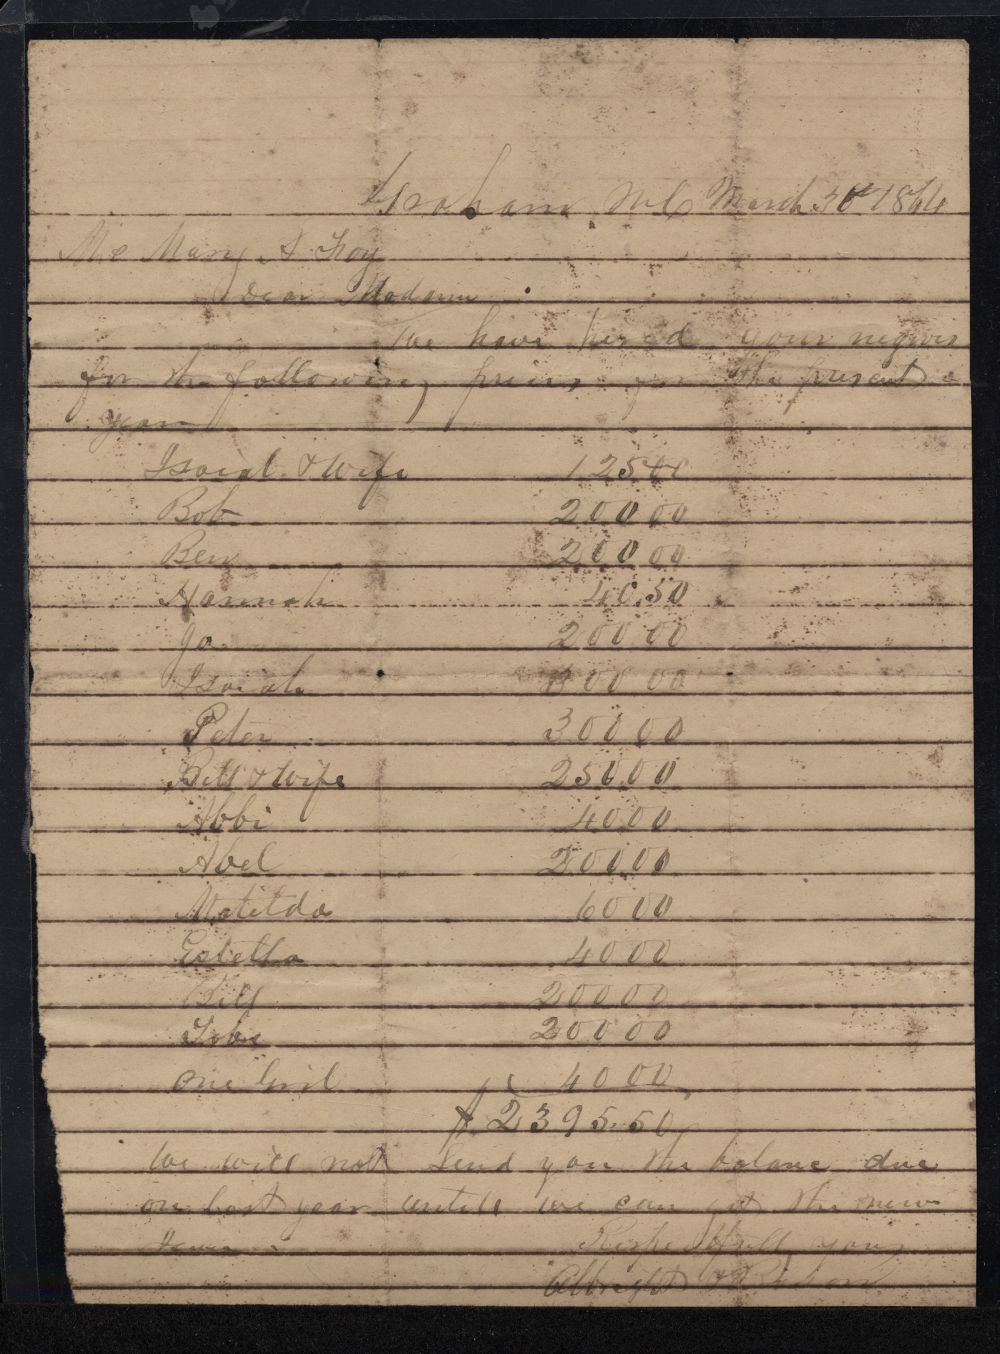 Graham N C March 30th 1864
Mrs Mary A Troy
Dear Madam
We have hired your negroes
for the following prices for the present
year
Isaiah & Wife 125.00
Bob 200 00
Ben 200 00
Hannah 40.50
Jo 200 00
Isaiah 300 00
Peter 300 00
Bill & Wife 250.00
Abbi 40 00
Abel 200.00
Matilda 60 00
Estella 40 00
Bill 200 00
Tobe 200 00
One Girl 40 00
$ 2395.50
We will not send you the balance due
on last year untill we can get the new
Issue
Respectfully yours
Albright &